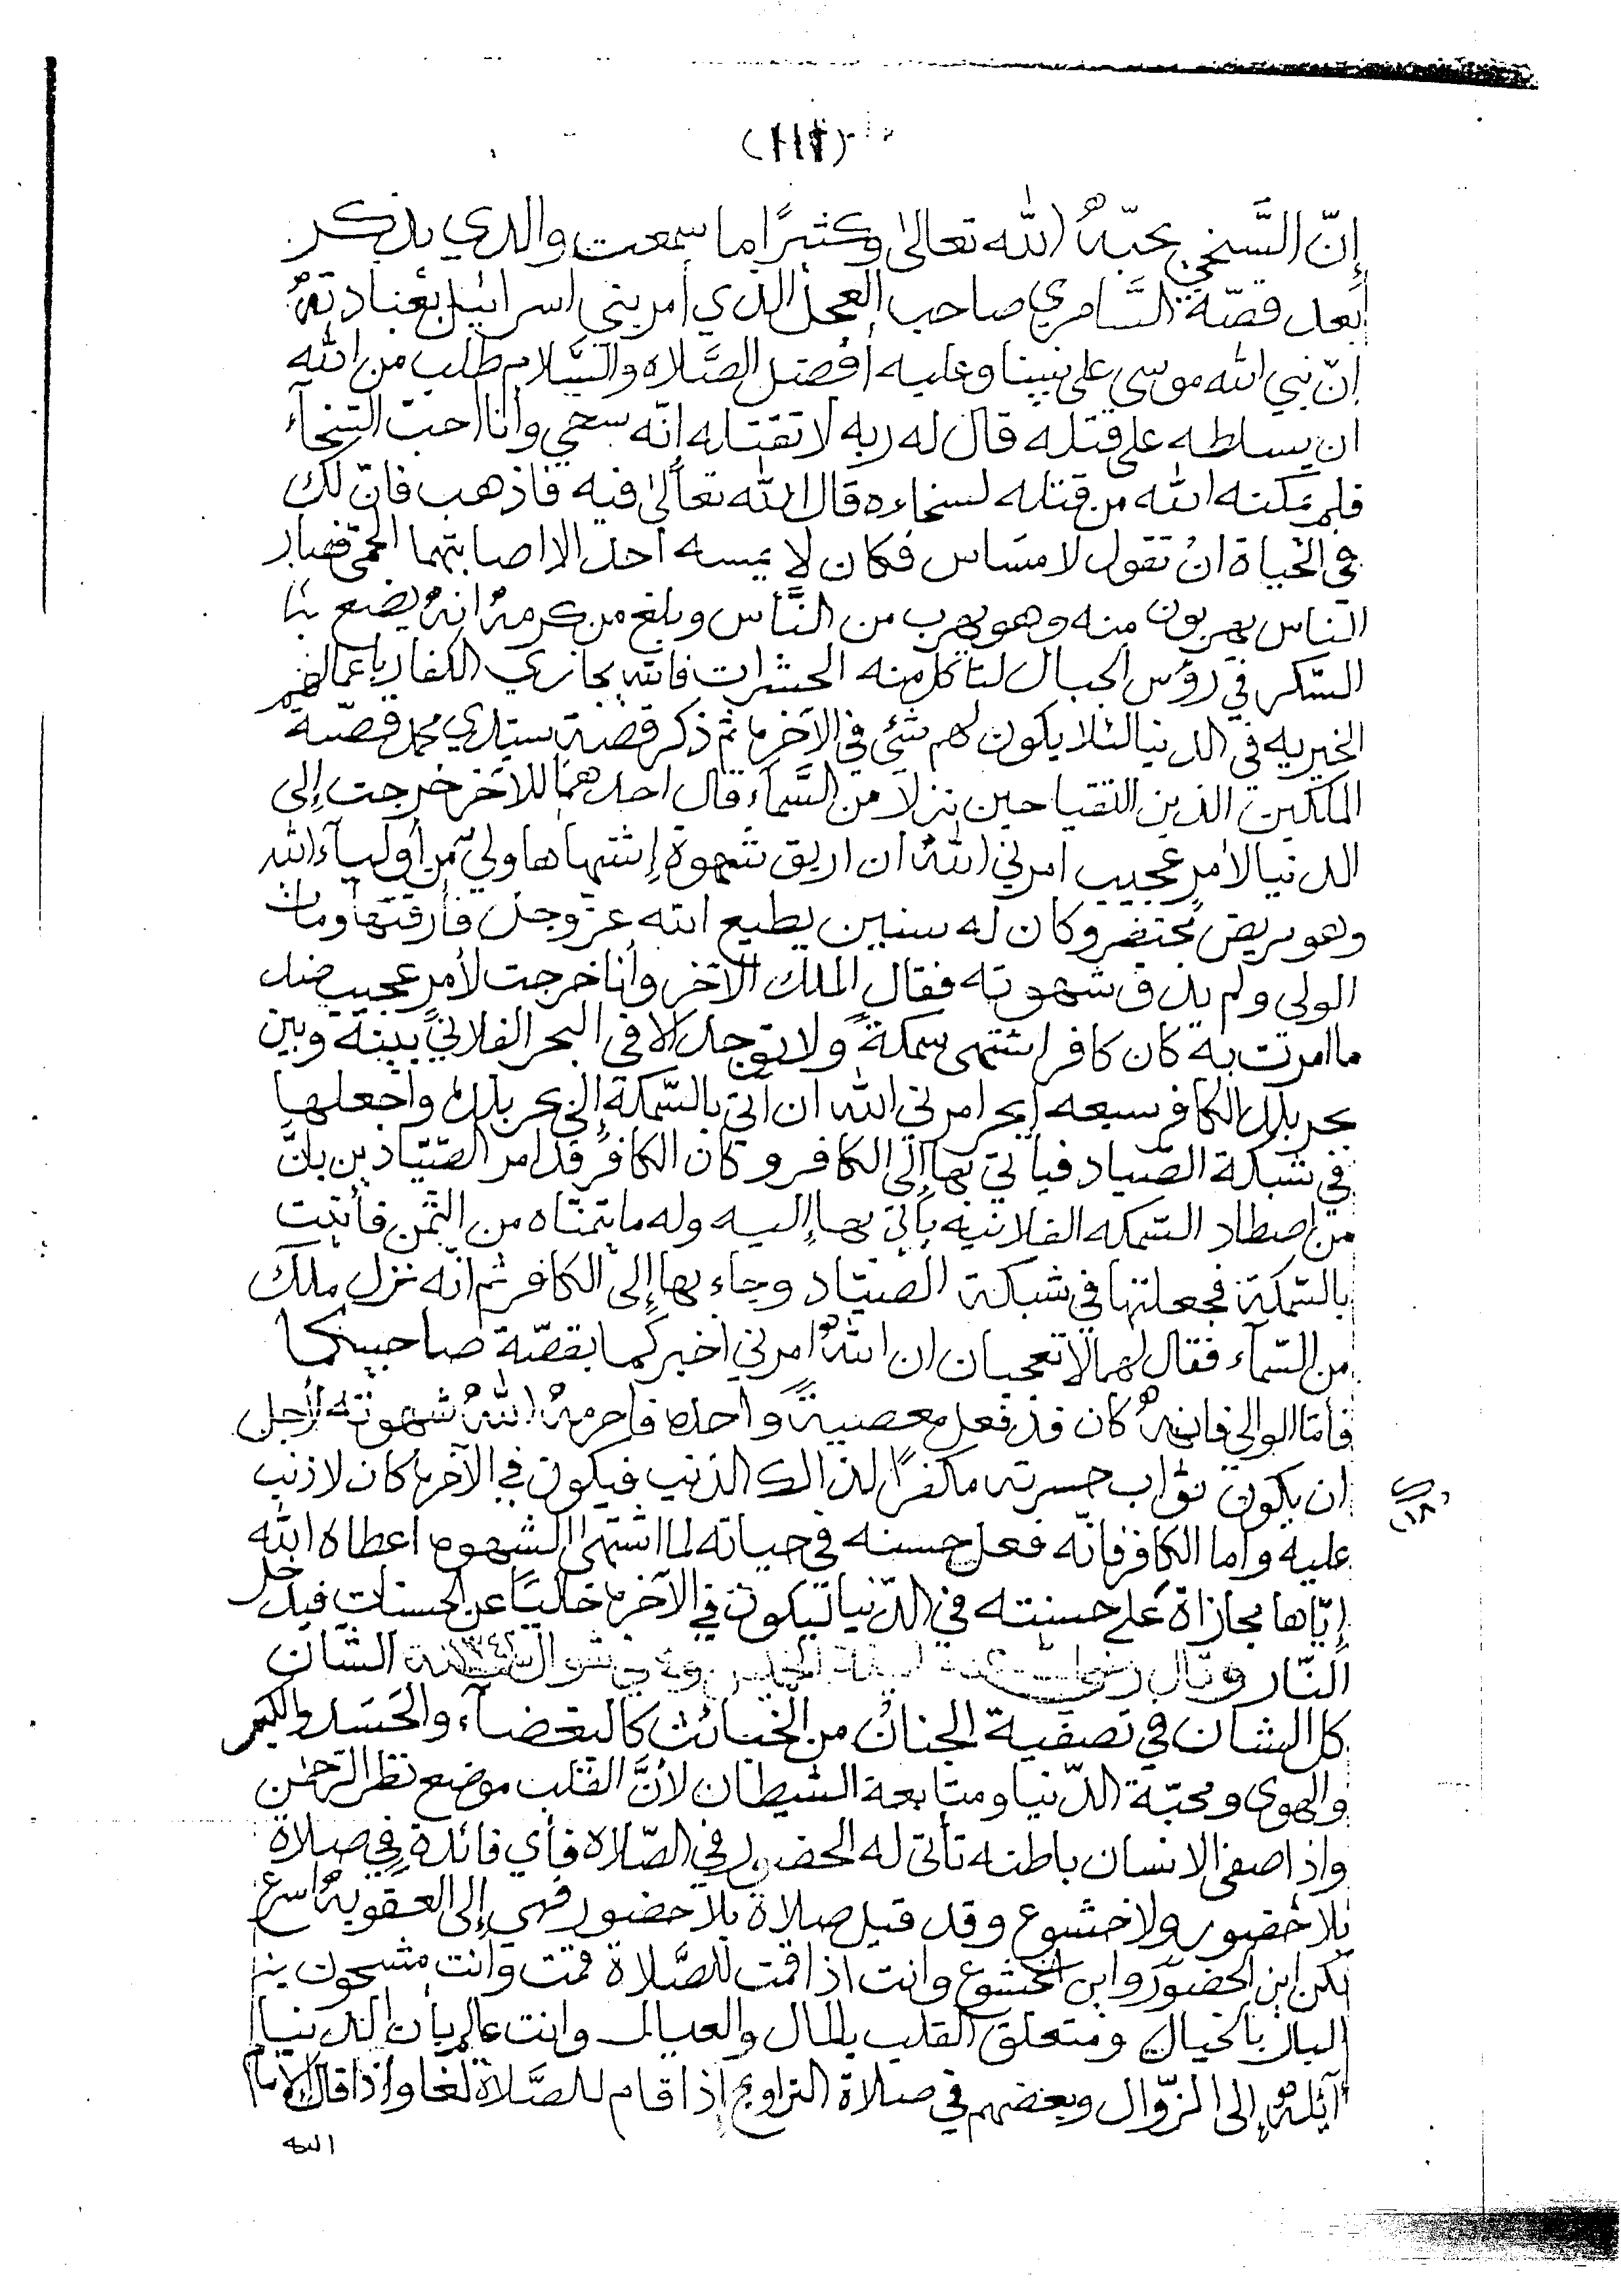 إنّ السَّخي يحبّهُ الله تعالى وكثيرًا ما سمعت والدي يذكر
بعد قصّة السَّامري صاحب العجل الذي أمر بني اسرائيل بعبادتهُ
انّ نبي الله موسى على نبينا وعليه افضل الصَّلاه والسَّلام طلب من الله
ان يسلطه على قتله قال له ربه لا تقتله إنّه سخي وأنا احب السّخآء
فلم يمكنه الله من قتله لسخاءه قال الله تعالى فيه فاذهب فانّ لك
في الحياة انْ تقول لا مسَاس فكان لا يمسه احد الا اصابتهما الحمى فصار
الناس يهربون منه وهو يهرب من النَّاس وبلغ من كرمهُ انهُ يضع
السّكر في رؤس الجبال لتأكل منه الحشرات فالله يجازي الكفار باعمالهم
الخيريه في الدنيا لئلا يكون لهم شئ في الآخره ثم ذكر قصة سيدي محمد قصّة
الملكين الذين التقيا حين نزلا من السَّماء قال احدهما للآخر خرجت إلى
الدنيا لأمر عجيب امرني اللهُ ان اريق شهوة إشتهاها وليّ من أولياء الله
وهو مريض محتضر وكان له سنين يطيع الله عز وجل فأرقتها ومات
الولي ولم يذق شهوته فقال الملك الآخر وأنا خرجت لأمر عجيب ضد
ما امرت به كان كافر اشتهى سمكةً ولا توجد إلا في البحر الفلاني بينه وبين
بحر بلد الكافر سبعه أبحر امرني الله ان آتي بالسّمكة إلى بحر بلده واجعلها
في شبكة الصّياد فيأتي بها إلى الكافر وكان الكافر قد امر الصّيّادين بانَّ
من اصطاد السّمكه الفلانيه يأتي بها إليه وله ما يتمنّاه من الثمن فأتيت
بالسّمكة فجعلتها في شبكة الصيّاد وجاء بها إلى الكافر ثم انّه نزل ملك
من السّمآء فقال لهما لا تعجبان ان اللهُ امرني اخبركما بقصّة صاحبيكما
فأمّا الوالي فانهُ كان قد فعل معصيةً واحده فاحرمهُ اللهُ شهوته لأجل
ان يكون ثواب حسرته مكفرًا لذالك الذنب فيكون في الآخره كان لا ذنب
عليه وأما الكافر فانّه فعل حسنه في حياته لما اشتهى الشهوه اعطاه الله
إيّاها مجازاة على حسنته في الدّنيا ليكون في الآخره خاليًا عن الحسنات فيدخل
النّار وقال رضي الله عنه ليلة الخميس وفي شوال سنة الشان
كل الشان في تصفية الجنان من الخبائث كالبغضآء والحَسَد والكبر
والهوى ومحبّة الدّنيا ومتابعة الشيطان لأنَّ القلب موضع نظر الرّحمن
واذا صفى الانسان باطنه تأتى له الحضور في الصّلاه فأي فائدة في صلاة
بلا حضور ولا خشوع وقد قيل صلاة بلا حضور فهي إلى العقوبهُ اسرع
لكن اين الحضور واين الخشوع وانت اذا قمت للصَّلاة قمت وانت مشحون
البال بالخيال ومتعلق القلب بالمال والعيال وانت عالم بأن الدنيا
آئلهُ إلى الزّوال وبعضهم في صلاة التراويح إذا قام للصَّلاة لغا واذا قال الامام
الله